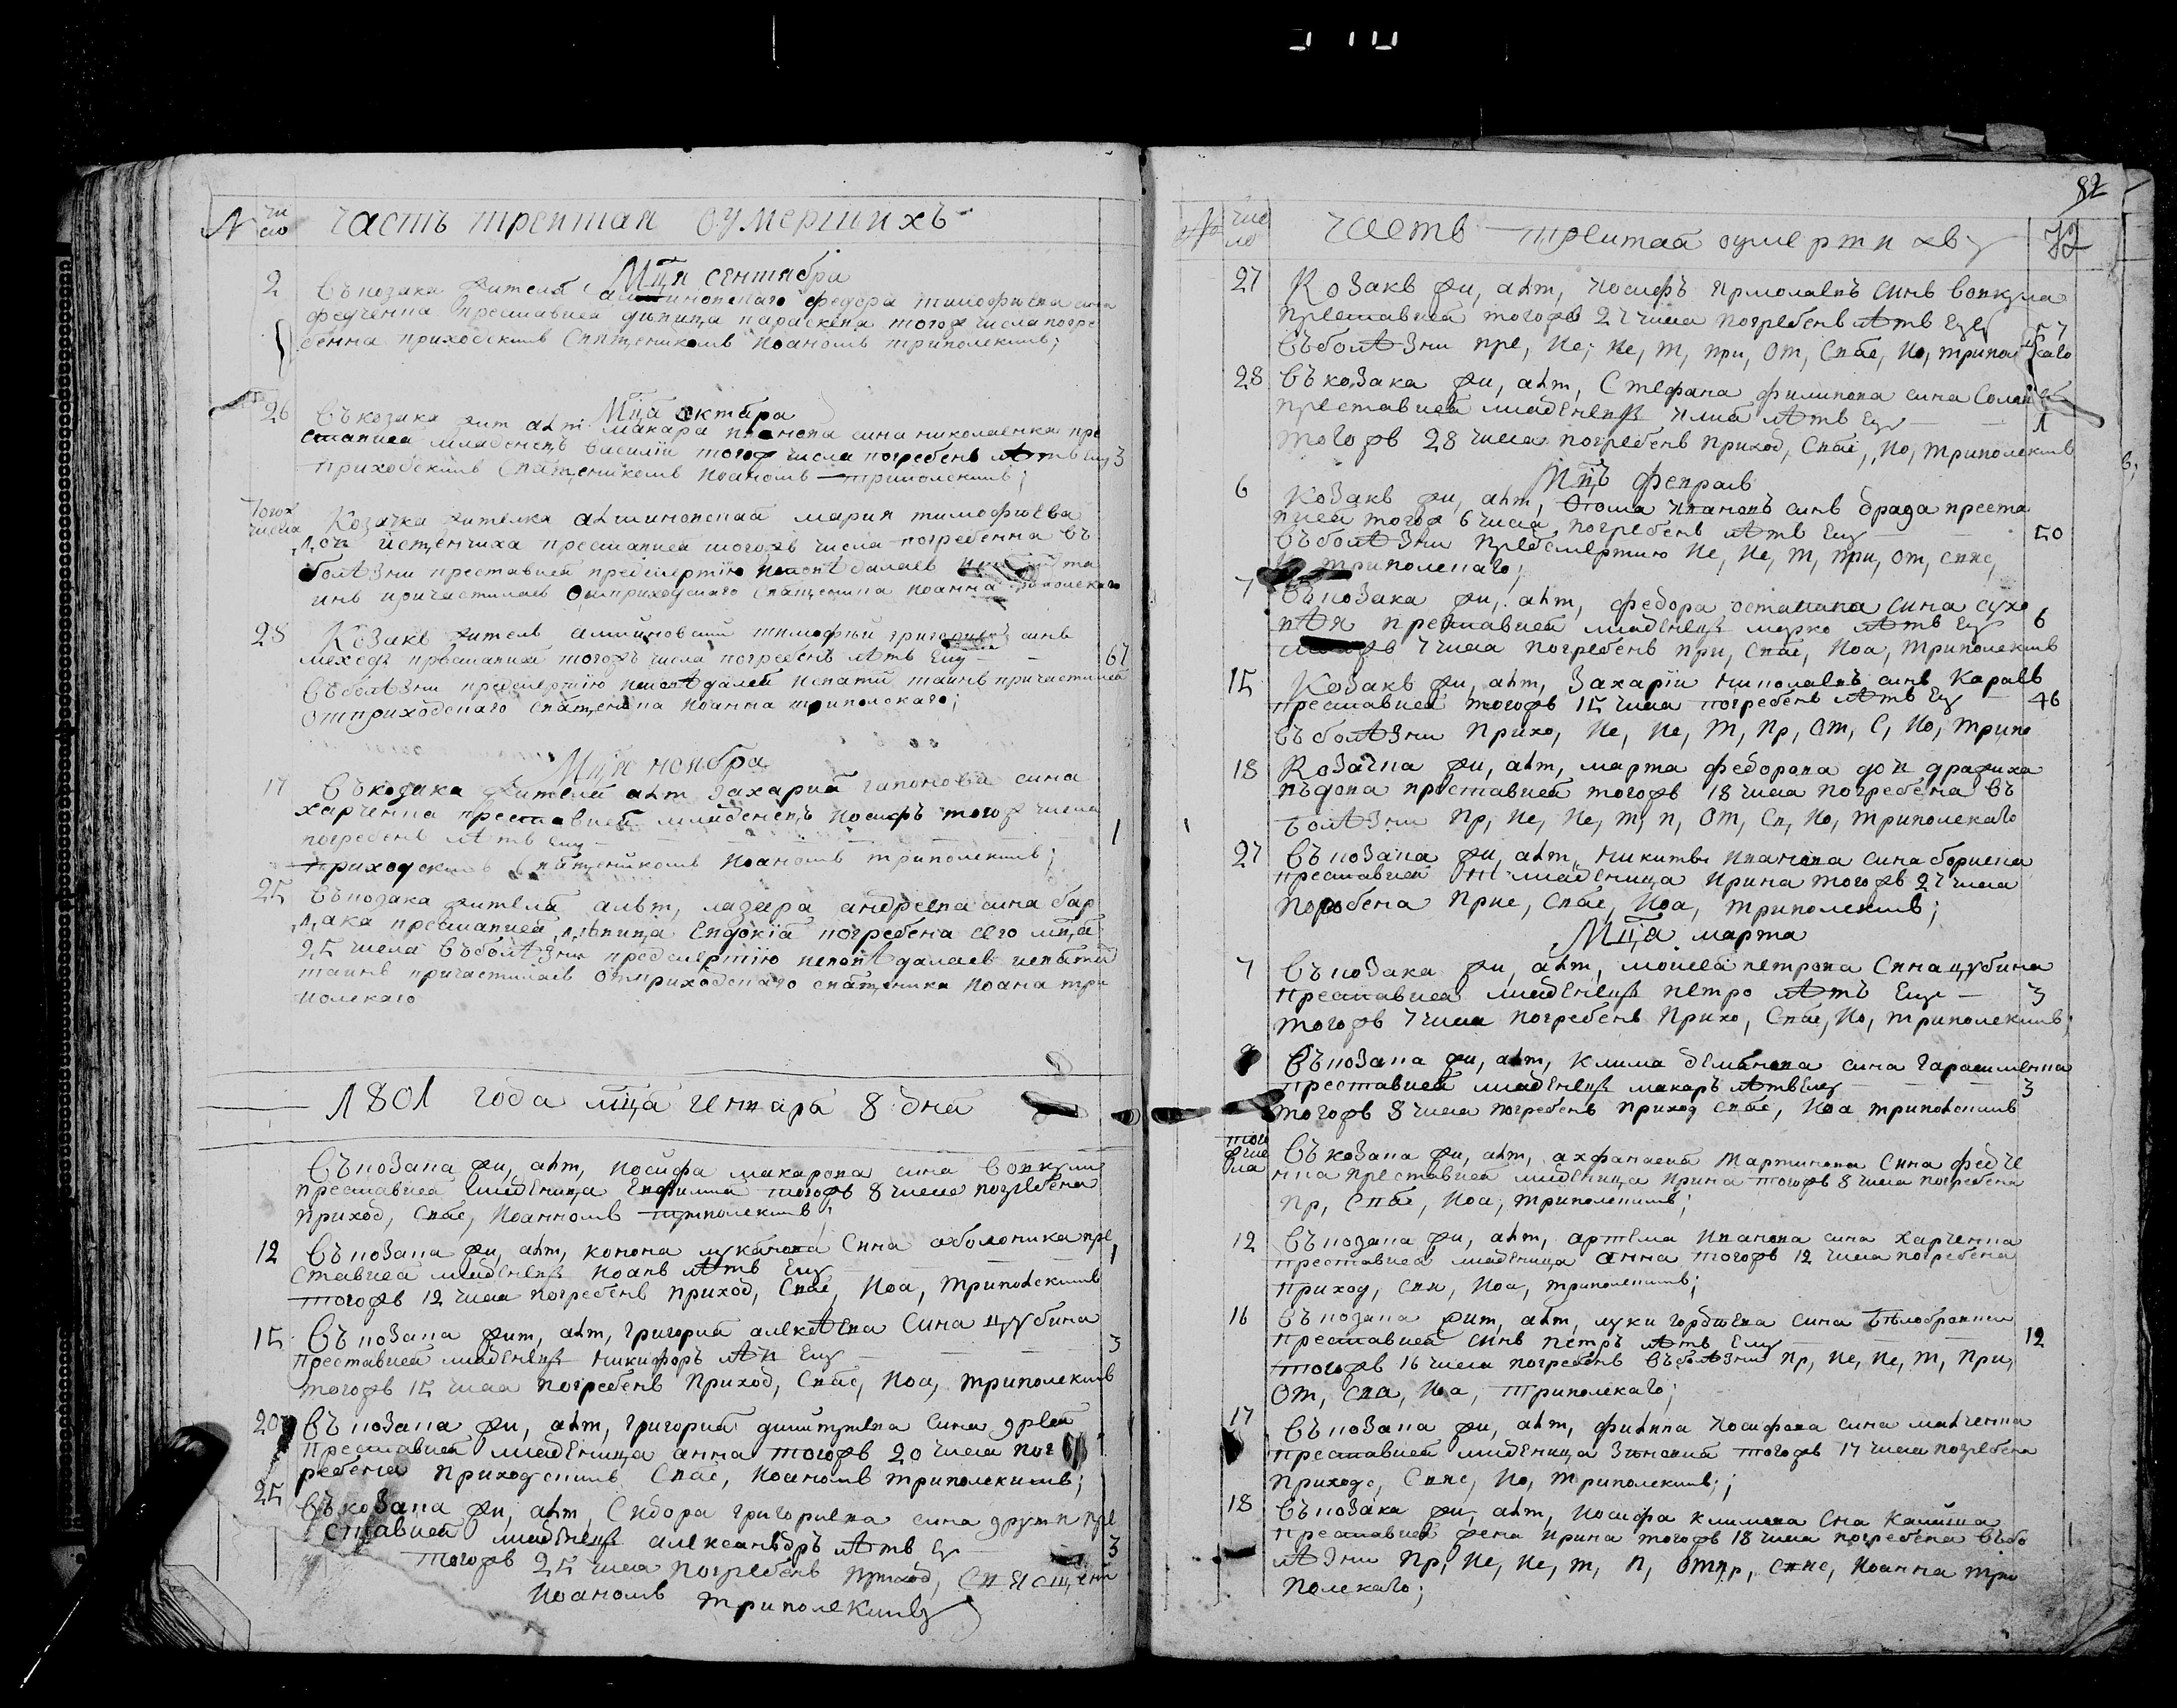 № чи сло часть трептая оумершихъ
Мца сентября
2 Въ козака жителя федора тимофиева сина
федченка преставися дѣвица параскева тогож числа погре
бенна приходскимъ Священикомъ Иоаномъ триполскимъ;
Мца октября
26 Въ козака жит алт макара иванова сина николаенка пре
ставися младенецъ василий тогож числа погребенъ лѣтъ Ему 3
приходскимъ Священикомъ Иоаномъ триполскимъ;
Тогож числа Козачка жителка алтиновская мария тимофиева
дочь преставися тогожъ числа погребенна въ
болѣзни преставися предсмертию исповѣдалась та
инъ причастилась Отприходскаго Священика Иоанна триполскаго
28 Козакъ житель алтиновский тимофий григориевъ синъ
преставися тогожъ числа погребенъ лѣтъ Ему 67
въ болѣзни предсмертию исповѣдался и святи таинъ причастился
отприходскаго Священика Иоанна триполскаго;
Мца ноября
17 Въ козака жителя алт Захария гапонова сина
харченка преставися младенецъ Иосифъ тогож числа
погребенъ лѣтъ Ему 1
приходскимъ Священикомъ Иоаномъ триполскимъ;
25 Въ козака жителя алт, лазара андреева сина бар
дака преставися дѣвица Евдокия погребена сего мца
25 числа въ болѣзни предсмертию исповѣдалась и святи
таинъ причастилась отприходскаго священика Иоана три
полскаго
1801 года мца Генваря 8 дня
Въ козака жи, алт, Иосифа макарова сина Совкули
преставися младеница Евфимия тогожъ 8 числа погребена
приход, Свяс, Иоанномъ триполскимъ;
12 Въ козака жи, алт, конона лукянова Сина оболоника пре
ставися младенецъ Иоанъ лѣтъ Ему 1
тогожъ 12 числа погребенъ приход, Свяс, Иоа, триполскимъ
15 Въ козака жит, алт, григория алексѣева Сина цубина
преставися младенецъ никифоръ лѣтъ Ему 3
тогожъ 15 числа погребенъ приход, Свяс, Иоа, триполскимъ
20 Въ козака жи, алт, григория димитриева Сина
преставися младеница анна тогожъ 20 числа пог
ребена приходскимъ Свяс, Иоаномъ триполскимъ;
25 Въ козака жи, алт, Сидора григориева сина пре
ставися младенецъ александръ лѣтъ Е 3
тогожъ 25 числа погребенъ приход, Священ
Иоаномъ триполскимъ
82
№ число часть третая оумертихъ 72
27 Козакъ жи, алт, Иосифъ ярмолаевъ синъ Совкула
преставися тогожъ 27 числа погребенъ лѣтъ Ему 57
въ болѣзни пре, Ис; Ис, т, при, От, Свяс, Ио, триполскаго
28 Въ козака жи, алт, Стефана филипова сина
преставися младенецъ илия лѣтъ Ему 1
тогожъ 28 числа погребенъ приход, Свяс, Ио, триполскимъ
Мцъ февраль
6 Козакъ жи, алт, Фома ивановъ синъ брада преста
вися тогож 6 числа погребенъ лѣтъ Ему 50
въ болѣзни предсмертию Ис, Ис, т, при, от, свяс,
триполскаго;
7 Въ козака жи, алт, федора остапова сина сухо
преставися младенецъ марко лѣтъ Ему 6
7 числа погребенъ при, Свяс, Иоа, триполскимъ
15 Козакъ жи, алт, Захарий николаевъ синъ Карась
преставися тогожъ 15 числа погребенъ лѣтъ Ему 46
въ болѣзни Прихо, Ис, Ис, Т, Пр, От, С, Ио, трипо
18 Козачка жи, алт, марта федорова доч дражиха
вѣдова преставися тогожъ 18 числа погребена въ
болѣзни Пр, Ис, Ис, т, п, От, Св, Ио, триполскаго
27 Въ козака жи, алт, никиты иванова сина
преставися младеница Ирина тогожъ 27 числа
погребена Прис, Свяс, Иоа, триполскимъ;
Мца марта
7 Въ козака жи, алт, моисея петрова Сина цубина
преставися младенецъ петро лѣтъ Ему 3
тогожъ 7 числа погребенъ Прихо, Свяс, Ио, триполскимъ;
Въ козака жи, алт, клима демянова сина гарасименка
преставися младенецъ макаръ лѣтъ Ему 3
тогожъ 8 числа погребенъ приход свяс, Иоа триполскимъ
того ж числа Въ козака жи, алт, ахфанасия мартинова Сина федче
нка преставися младеница ирина тогожъ 8 числа погребена
пр, Свяс, Иоа, триполскимъ;
12 Въ козака жи, алт, артема иванова сина харченка
преставися младеница анна тогожъ 12 числа погребена
приход, Свя, Иоа, триполскимъ;
16 Въ козака жит, алт, луки гордѣева сина
преставися синъ петръ лѣтъ Ему 12
тогожъ 16 числа погребенъ въ болѣзни пр, Ис, Ис, т, при,
от, свя, Иоа, триполскаго;
17 Въ козака жи, алт, филипа иосифова сина
преставися младеница Зиновия тогожъ 17 числа погребена
приходс, Свяс, Ио, триполскимъ;
18 Въ козака жи, алт, Иосифа климова Сна
преставися жена ирина тогожъ 18 числа погребена въ бо
лѣзни пр, Ис, Ис, т, п, отпр, свяс, Иоанна три
полскаго;